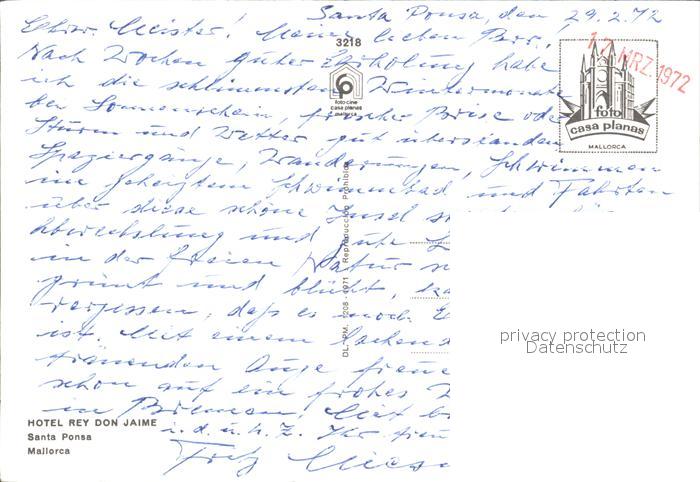 Santa Ponsa, den 29.2.72
Ehrw. Meister! Meine lieben Brr.,
Nach Wochen guter Erholung habe
ich die schlimmsten Wintermonate
bei Sonnenschein, frischer Brise oder
Sturm und Wetter gut überstanden
Spaziergänge, Wanderungen, Schwimmen
im geheizten Schwimmbad und Fahrten
über diese schöne Insel
Abwechslung und gute
in der freien Natur
grünt und blüht,
vergessen, daß es noch
ist. Mit einem lachenden
tränenden Auge
schon auf ein frohes
in Bremen. Mit
i. d. u. h. Z. Ihr
Fritz
3218
foto-cine
casa planas
mallorca
17. MRZ. 1972
foto
casa planas
MALLORCA
DL. PM. 1208 - 1971 - Reproducción Prohibida
HOTEL REY DON JAIME
Santa Ponsa
Mallorca
privacy protection
Datenschutz